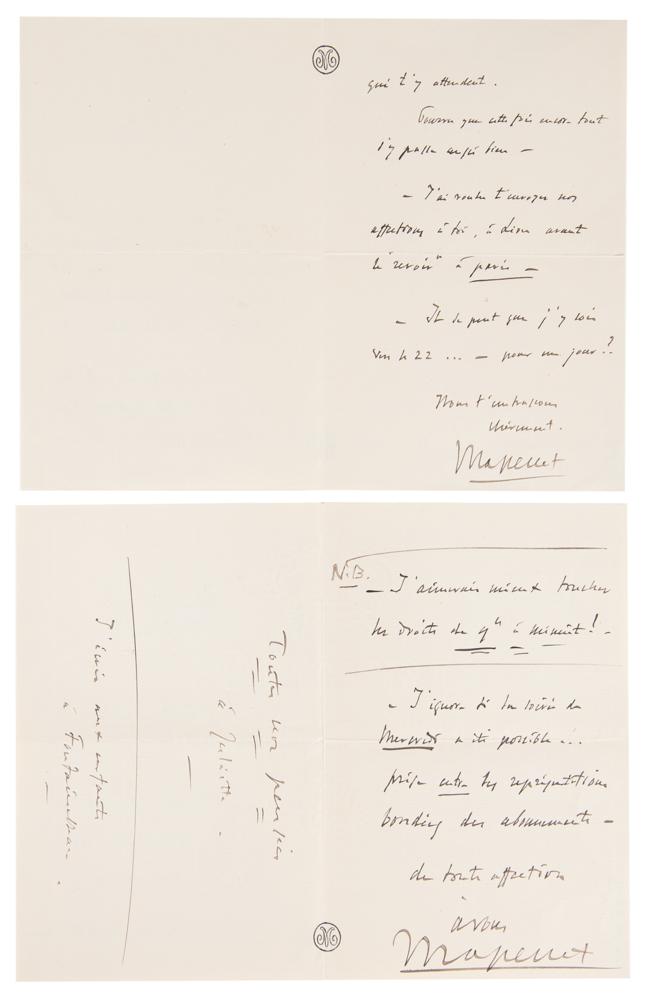 qui t'y attendent.
Pourvu que cette fois encore tout
s'y passe aussi bien —
— J'ai voulu t'envoyer nos
affections à toi, à Lison avant
le "revoir" à paris —
— Il se peut que j'y sois
vers le 22 ... — pour un jour!?
Nous t'embrassons
chèrement.
Massenet
N.B.
— J'aimerais mieux toucher
les droits de 9h à minuit! —
— J'ignore si la soirée de
Mercredi a été possible ...
prise entre les représentations
des abonnements —
de toute affection
à vous
Massenet
Toutes nos pensées
à Juliette.
J'écris aux enfants
à Fontainebleau.